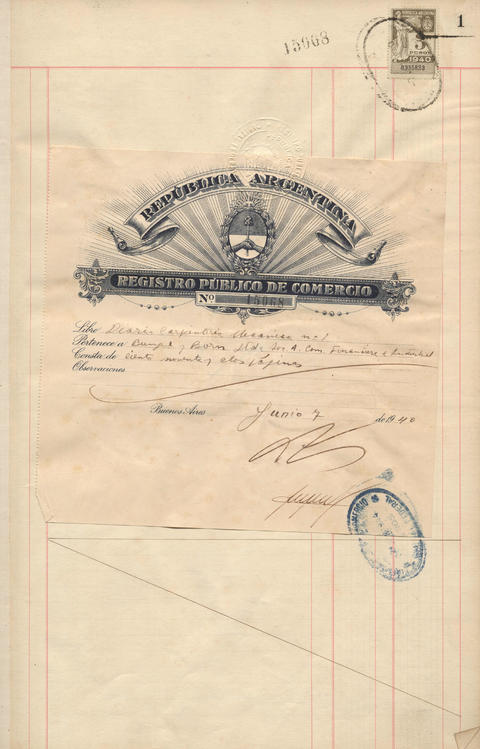 1
15068
5
PESOS
1940
REPÚBLICA ARGENTINA
REGISTRO PÚBLICO DE COMERCIO
Nº 15068
Libro Diario Carpintería Mecánica nº 1
Pertenece a Bunge y Born Ltda Soc A. Com. Financiera e Industrial
Consta de ciento noventa y dos páginas
Observaciones
Buenos Aires Junio 7 de 1940